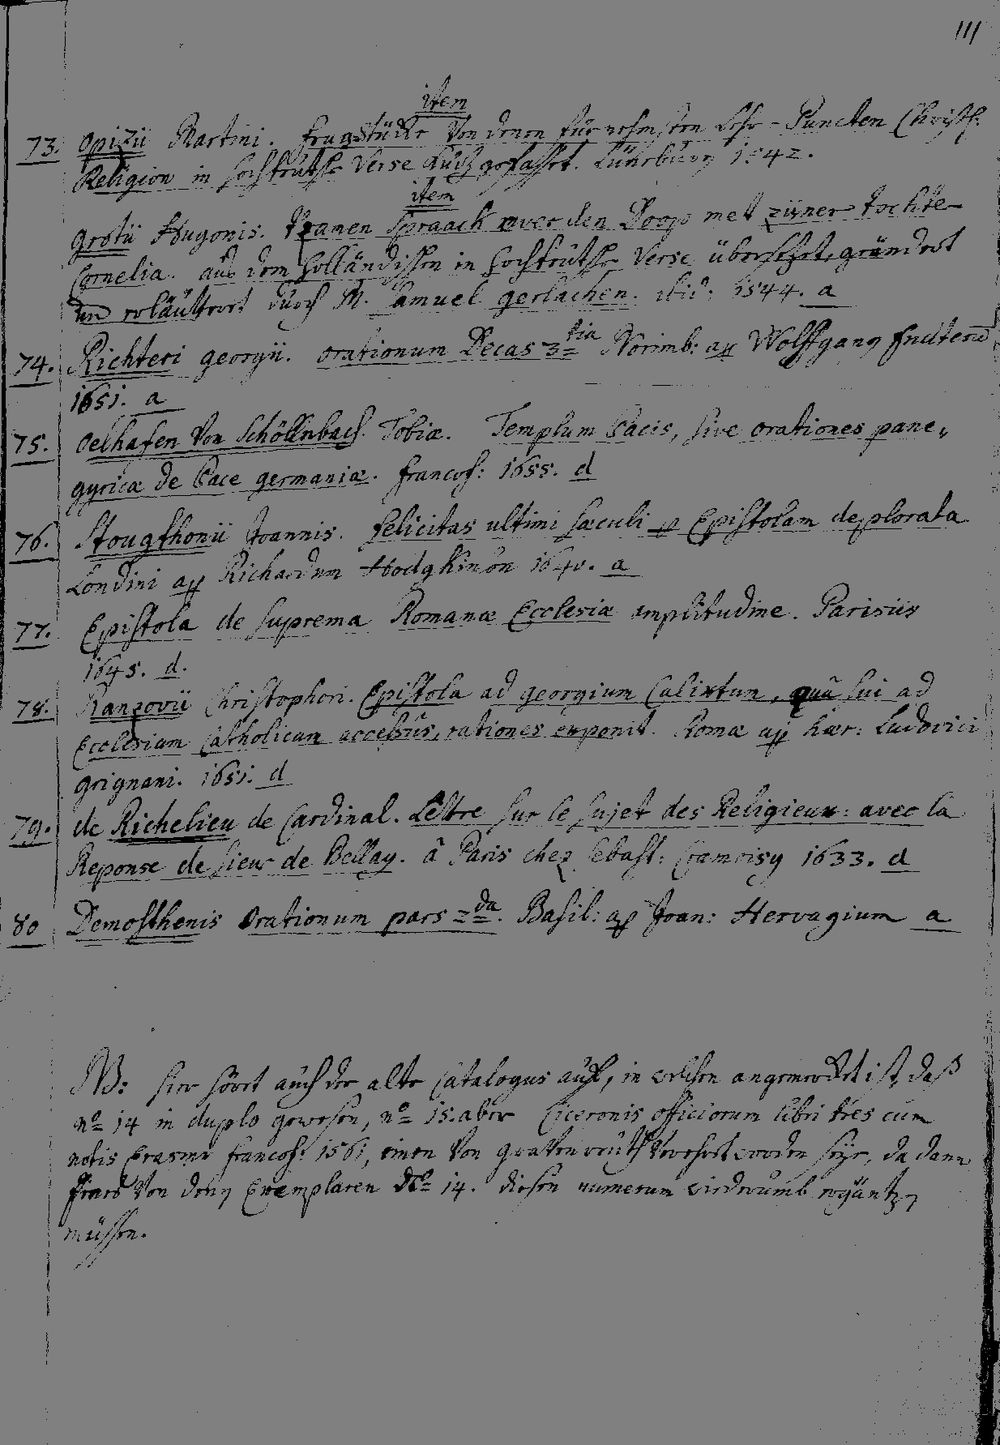 111
item
73. Opizii Martini. Fragstücke Von denen fürnehmsten Lehr-Puncten Christl:
Religion in hochteütsche Verse kurtz gefasset. Lüneburg 1542.
item
Grotii Hugonis. tzamen Spraack over den Doop met zijner tochte-
Cornelia. aus dem holländischen in hochteütsche Verse übersetzet, geändert
und erläuttert durch M. Samuel Gerlachen. ibid: 1544. a
74. Richteri Georgii. Orationum Decas 3tia Norimb: ap Wolffgang Endterum
1651. a
75. Oelhafen Von Schöllnbach. Tobiæ. Templum Pacis, sive Orationes pane„
gyricæ de Pace Germaniæ. Francof: 1655. d
76. Stougthonii Joannis. Felicitas ultimi sæculi p Epistolam deplorata
Londini ap Richardum Hodgkinson 1640. a
77. Epistola de suprema Romanæ Ecclesiæ amplitudine. Parisiis
1645. d.
78. Ranzovii Christophori. Epistola ad Georgium Calixtum, quâ sui ad
Ecclesiam Catholicam accessûs, rationes exponit. Romæ ap hær: Ludovici
Grignani. 1651. d
79. de Richelieu de Cardinal. Lettre sur le sujet des Religieux: avec la
Reponse de sieur de Bellay. â Paris chez Sebast: Cramoisy 1633. d
80 Demosthenis Orationum pars 2da. Basil: ap Joan: Hervagium a
NB: hier hört auch der alte Catalogus auf, in welchem angemercket ist, daß
no 14 in duplo gewesen, no 15. aber Ciceronis officiorum libri tres cum
notis Erasmi Francof: 1561, einen Von verehrt worden seye, da dann
Von den Exemplaren No 14. diesen numerum wiederumb ergäntzen
müssen.